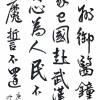 御醫鐘
家卫國赴武漢
心為人民不
魔誓不還